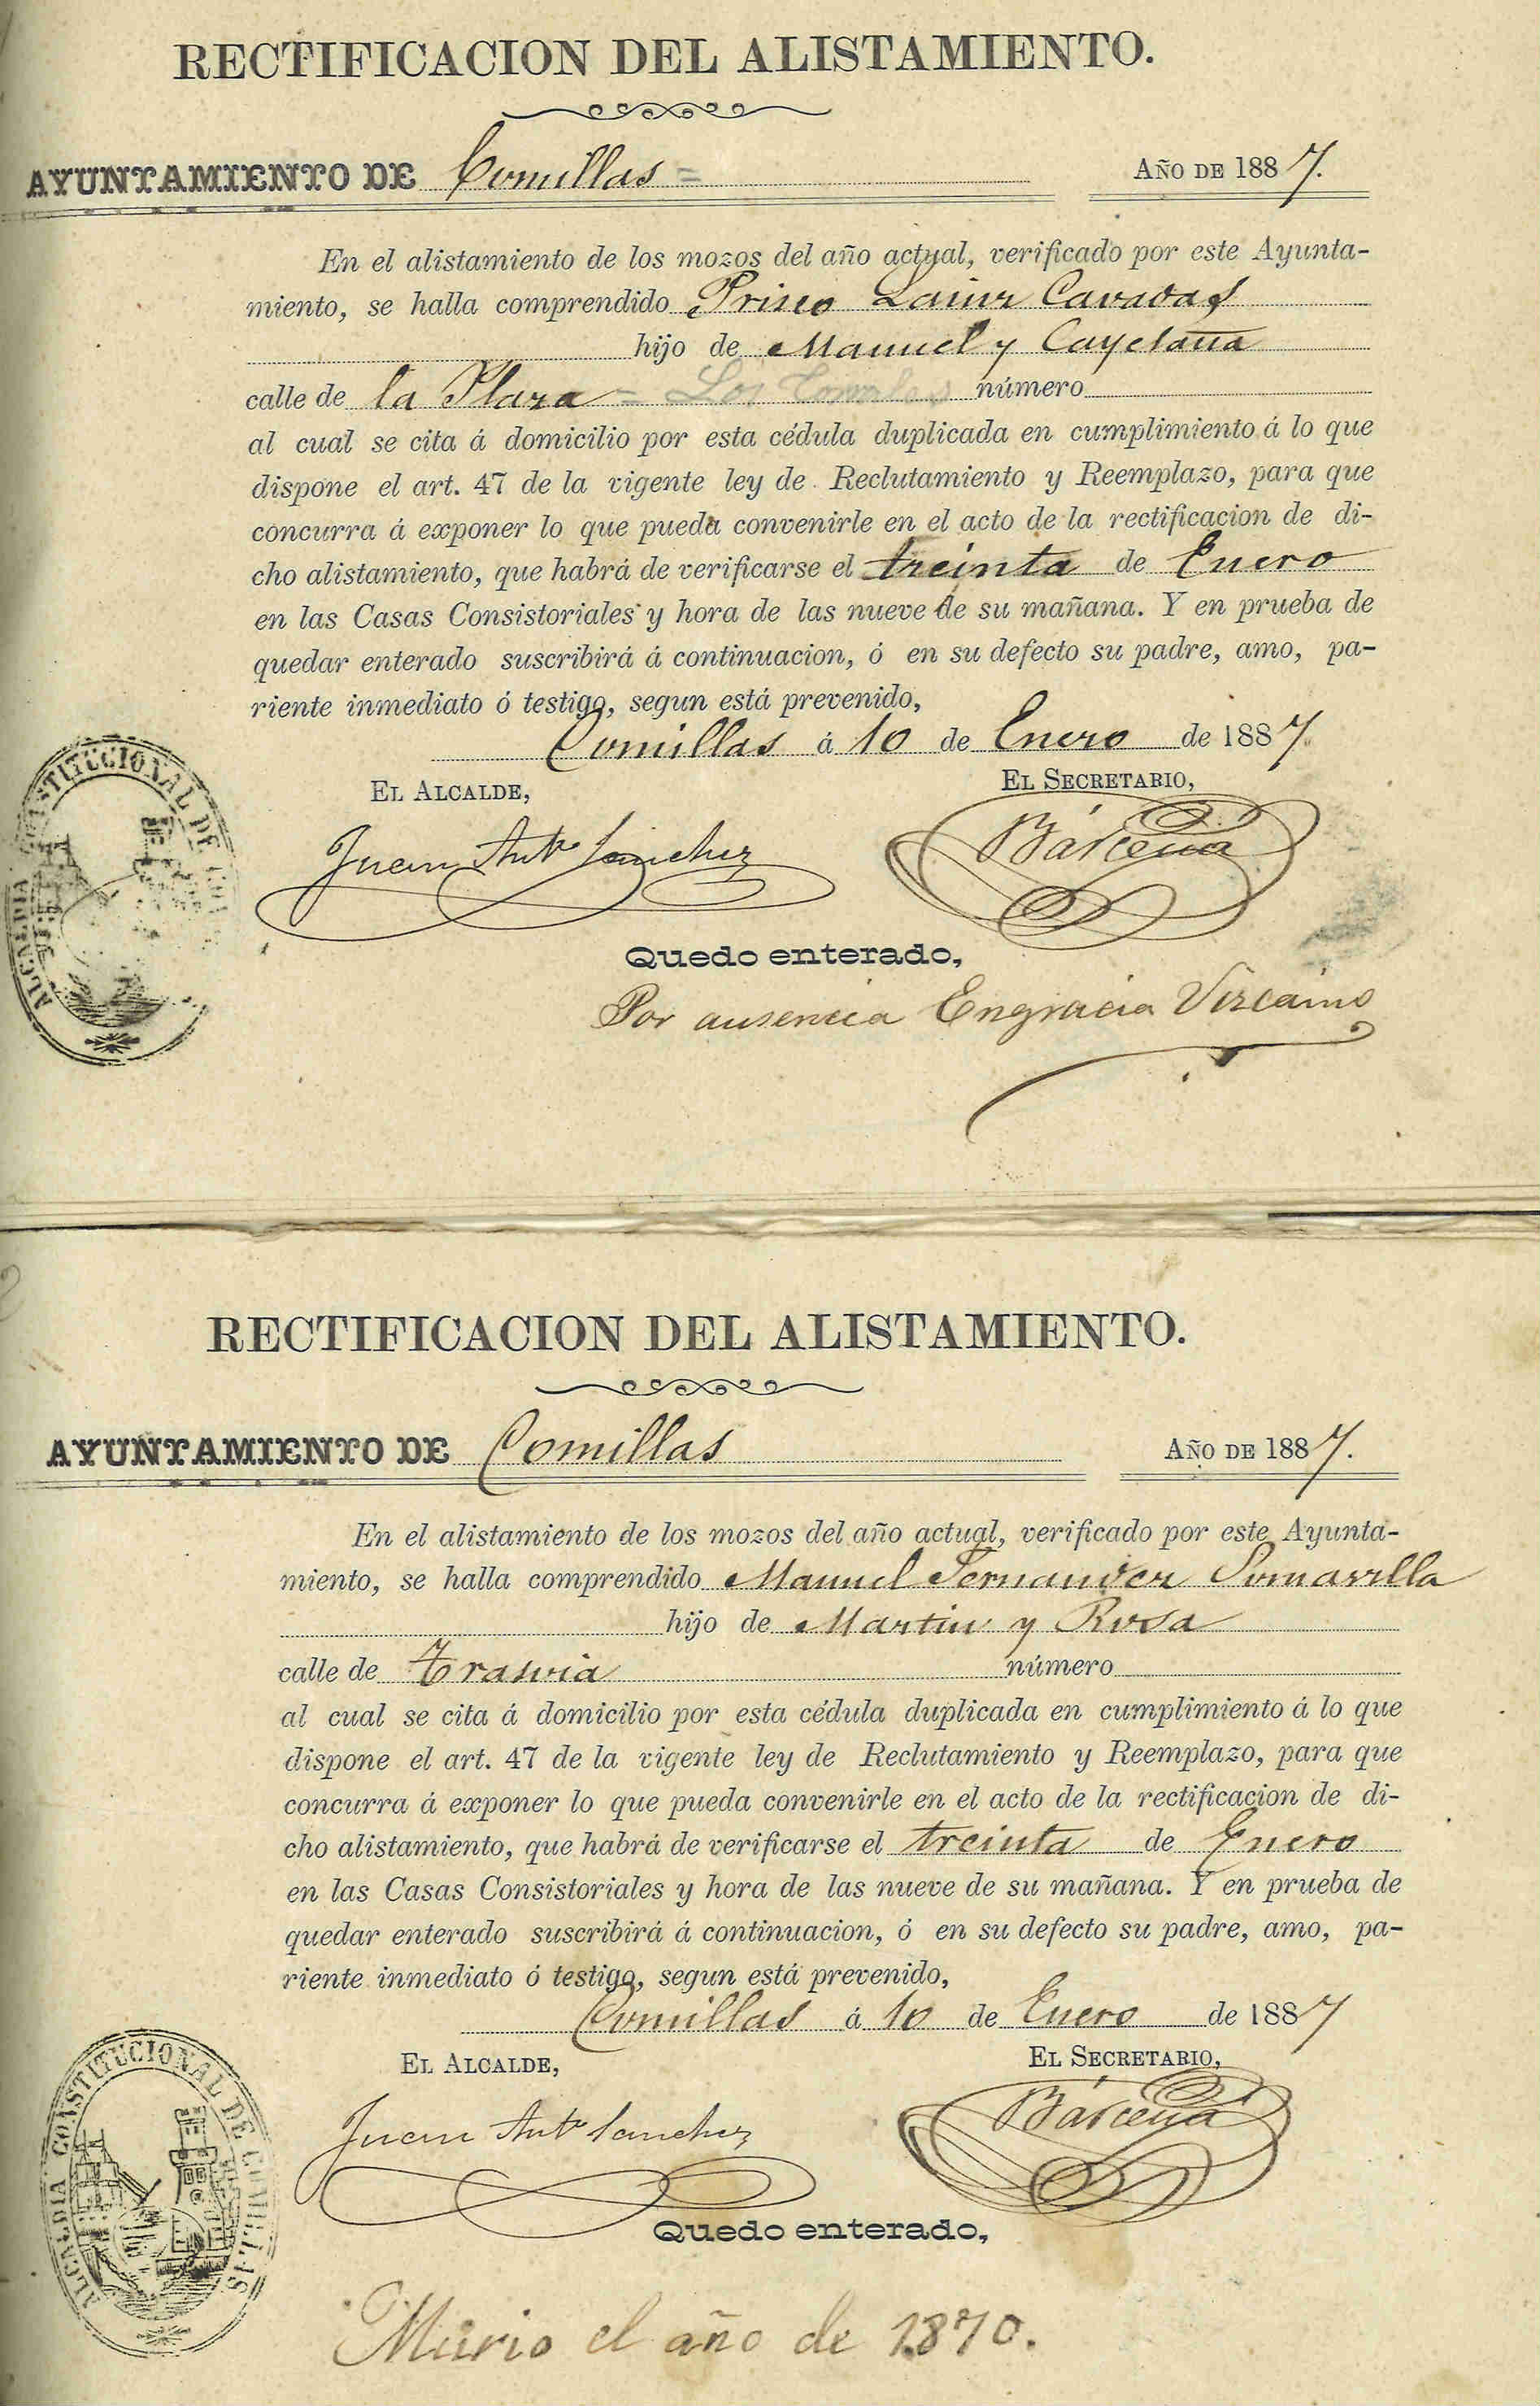 RECTIFICACION DEL ALISTAMIENTO.
AYUNTAMIENTO DE Comillas = AÑO DE 1887.
En el alistamiento de los mozos del año actual, verificado por este Ayunta-
miento, se halla comprendido Prisco Lainz Cavadas
hijo de Manuel y Cayetana
calle de la Plaza = Los Corrales número
al cual se cita á domicilio por esta cédula duplicada en cumplimiento á lo que
dispone el art. 47 de la vigente ley de Reclutamiento y Reemplazo, para que
concurra á exponer lo que pueda convenirle en el acto de la rectificacion de di-
cho alistamiento, que habrá de verificarse el treinta de Enero
en las Casas Consistoriales y hora de las nueve de su mañana. Y en prueba de
quedar enterado suscribirá á continuacion, ó en su defecto su padre, amo, pa-
riente inmediato ó testigo, segun está prevenido,
Comillas á 10 de Enero de 1887.
EL ALCALDE, EL SECRETARIO,
Juan Antº Sanchez Bárcena
ALCALDIA CONSTITUCIONAL DE COM
Quedo enterado,
Por ausencia Engracia Vizcaino
RECTIFICACION DEL ALISTAMIENTO.
AYUNTAMIENTO DE Comillas AÑO DE 1887.
En el alistamiento de los mozos del año actual, verificado por este Ayunta-
miento, se halla comprendido Manuel Fernandez Somavilla
hijo de Martin y Rosa
calle de Trasvia número
al cual se cita á domicilio por esta cédula duplicada en cumplimiento á lo que
dispone el art. 47 de la vigente ley de Reclutamiento y Reemplazo, para que
concurra á exponer lo que pueda convenirle en el acto de la rectificacion de di-
cho alistamiento, que habrá de verificarse el treinta de Enero
en las Casas Consistoriales y hora de las nueve de su mañana. Y en prueba de
quedar enterado suscribirá á continuacion, ó en su defecto su padre, amo, pa-
riente inmediato ó testigo, segun está prevenido,
Comillas á 10 de Enero de 1887
EL ALCALDE, EL SECRETARIO,
Juan Antº Sanchez Bárcena
ALCALDIA CONSTITUCIONAL DE COMILLAS
Quedo enterado,
Murio el año de 1870.